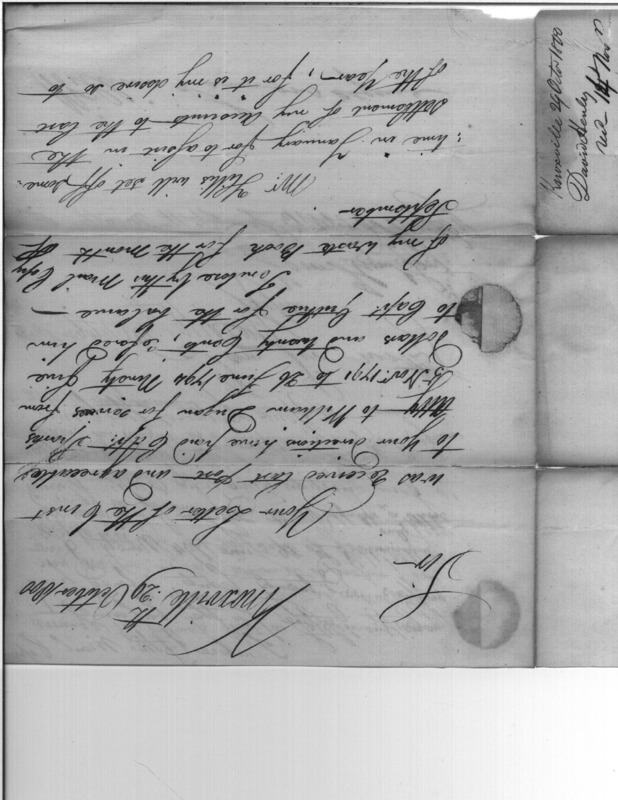 Knoxville 29th October 1800
Sir
Your Letter of the Inst
was received last post and agreeable
to your directions have paid Capt. Sparks
Atty to William Dugan for services from
Nov. 1791 to 26 June 1794 Ninety five
Dollars and twenty Cents, refered him
to Capt. for the balance —
Inclose by this Mail Copy
of my Waste Book for the month of
September
Mr. will set off some
time in January for to assist in the
settlement of my accounts to the last
of the Year, for it is my desire so to
Knoxville 29 Octo. 1800
David Henley
rec 14 Nov